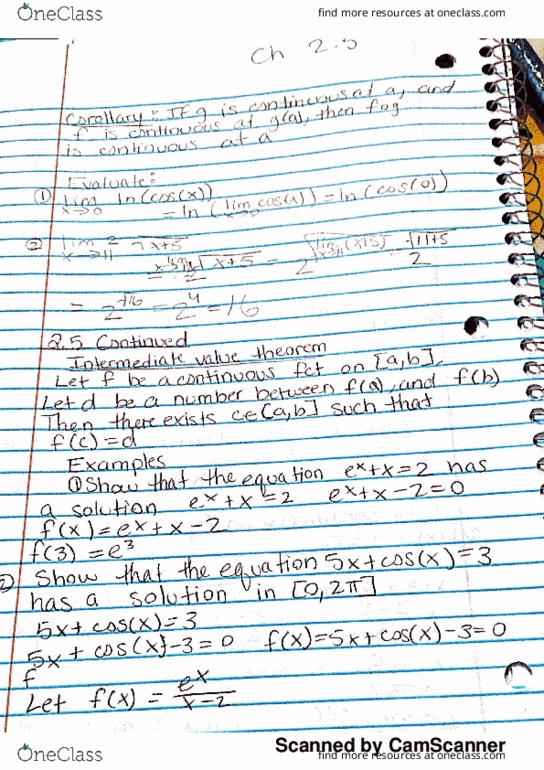 OneClass
find more resources at oneclass.com
Ch 2.5
Corollary: If g is continuous at a, and
f is continuous at g(a), then fog
is continuous at a
Evaluate:
① lim x→0 ln(cos(x))
= ln (lim x→0 cos(x)) = ln(cos(0))
② lim x→11 2 √x+5
√x+5 = 2 √lim x→11 (x+5) = √11+5 2
= 2^√16 = 2^4 = 16
2.5 Continued
Intermediate value theorem
Let f be a continuous fct on [a,b],
Let d be a number between f(a), and f(b)
Then there exists c∈[a,b] such that
f(c)=d
Examples
① Show that the equation e^x+x=2 has
a solution e^x+x=2 e^x+x-2=0
f(x)=e^x+x-2
f(3)=e^3
② Show that the equation 5x+cos(x)=3
has a solution in [0,2π]
5x+cos(x)=3
5x+cos(x)-3=0 f(x)=5x+cos(x)-3=0
f
Let f(x) = e^x/x-2
Scanned by CamScanner
OneClass
find more resources at oneclass.com